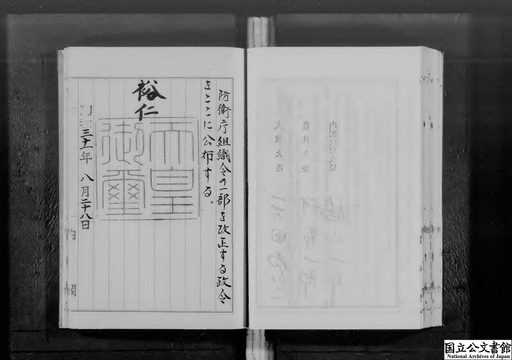 防衛庁組織令の一部を改正する政令
をここに公布する。
裕仁
天皇
御璽
昭和三十一年八月二十八日
内閣
国立公文書館
National Archives of Japan